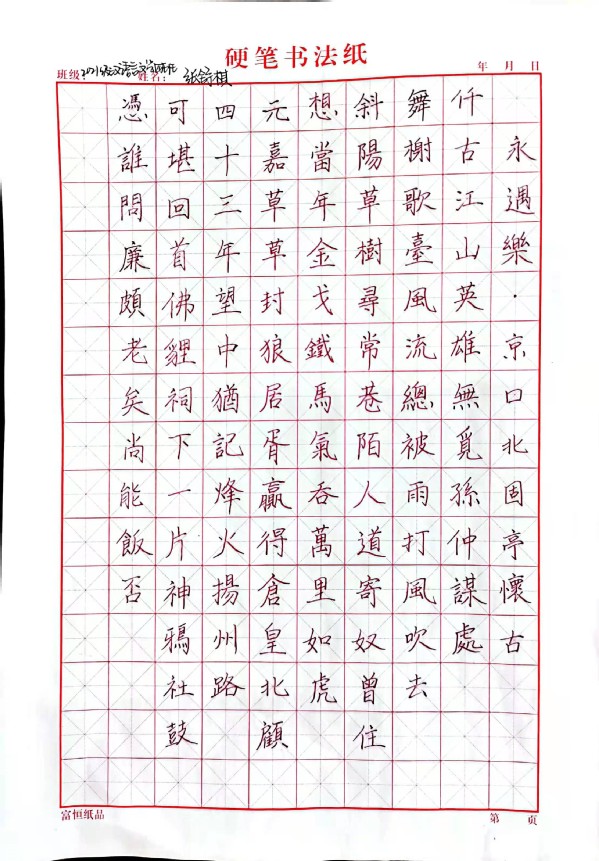 硬笔书法纸
班级: 姓名: 年 月 日
永遇樂·京口北固亭懷古
仟古江山英雄無覓孫仲謀處
舞榭歌臺風流總被雨打風吹去
斜陽草樹尋常巷陌人道寄奴曾住
想當年金戈鐵馬氣吞萬里如虎
元嘉草草封狼居胥贏得倉皇北顧
四十三年望中猶記烽火揚州路
可堪回首佛貍祠下一片神鴉社鼓
憑誰問廉頗老矣尚能飯否
富恒纸品 第 页